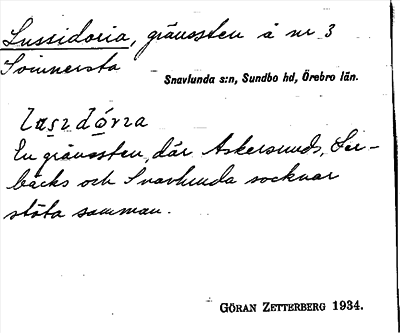 Lussidoria, gränssten å nr 3
Svinnersta
Snavlunda s:n, Sundbo hd, Örebro län.
En gränssten, där Askersunds, Ler-
bäcks och Snavlunda socknar
stöta samman.
GÖRAN ZETTERBERG 1934.